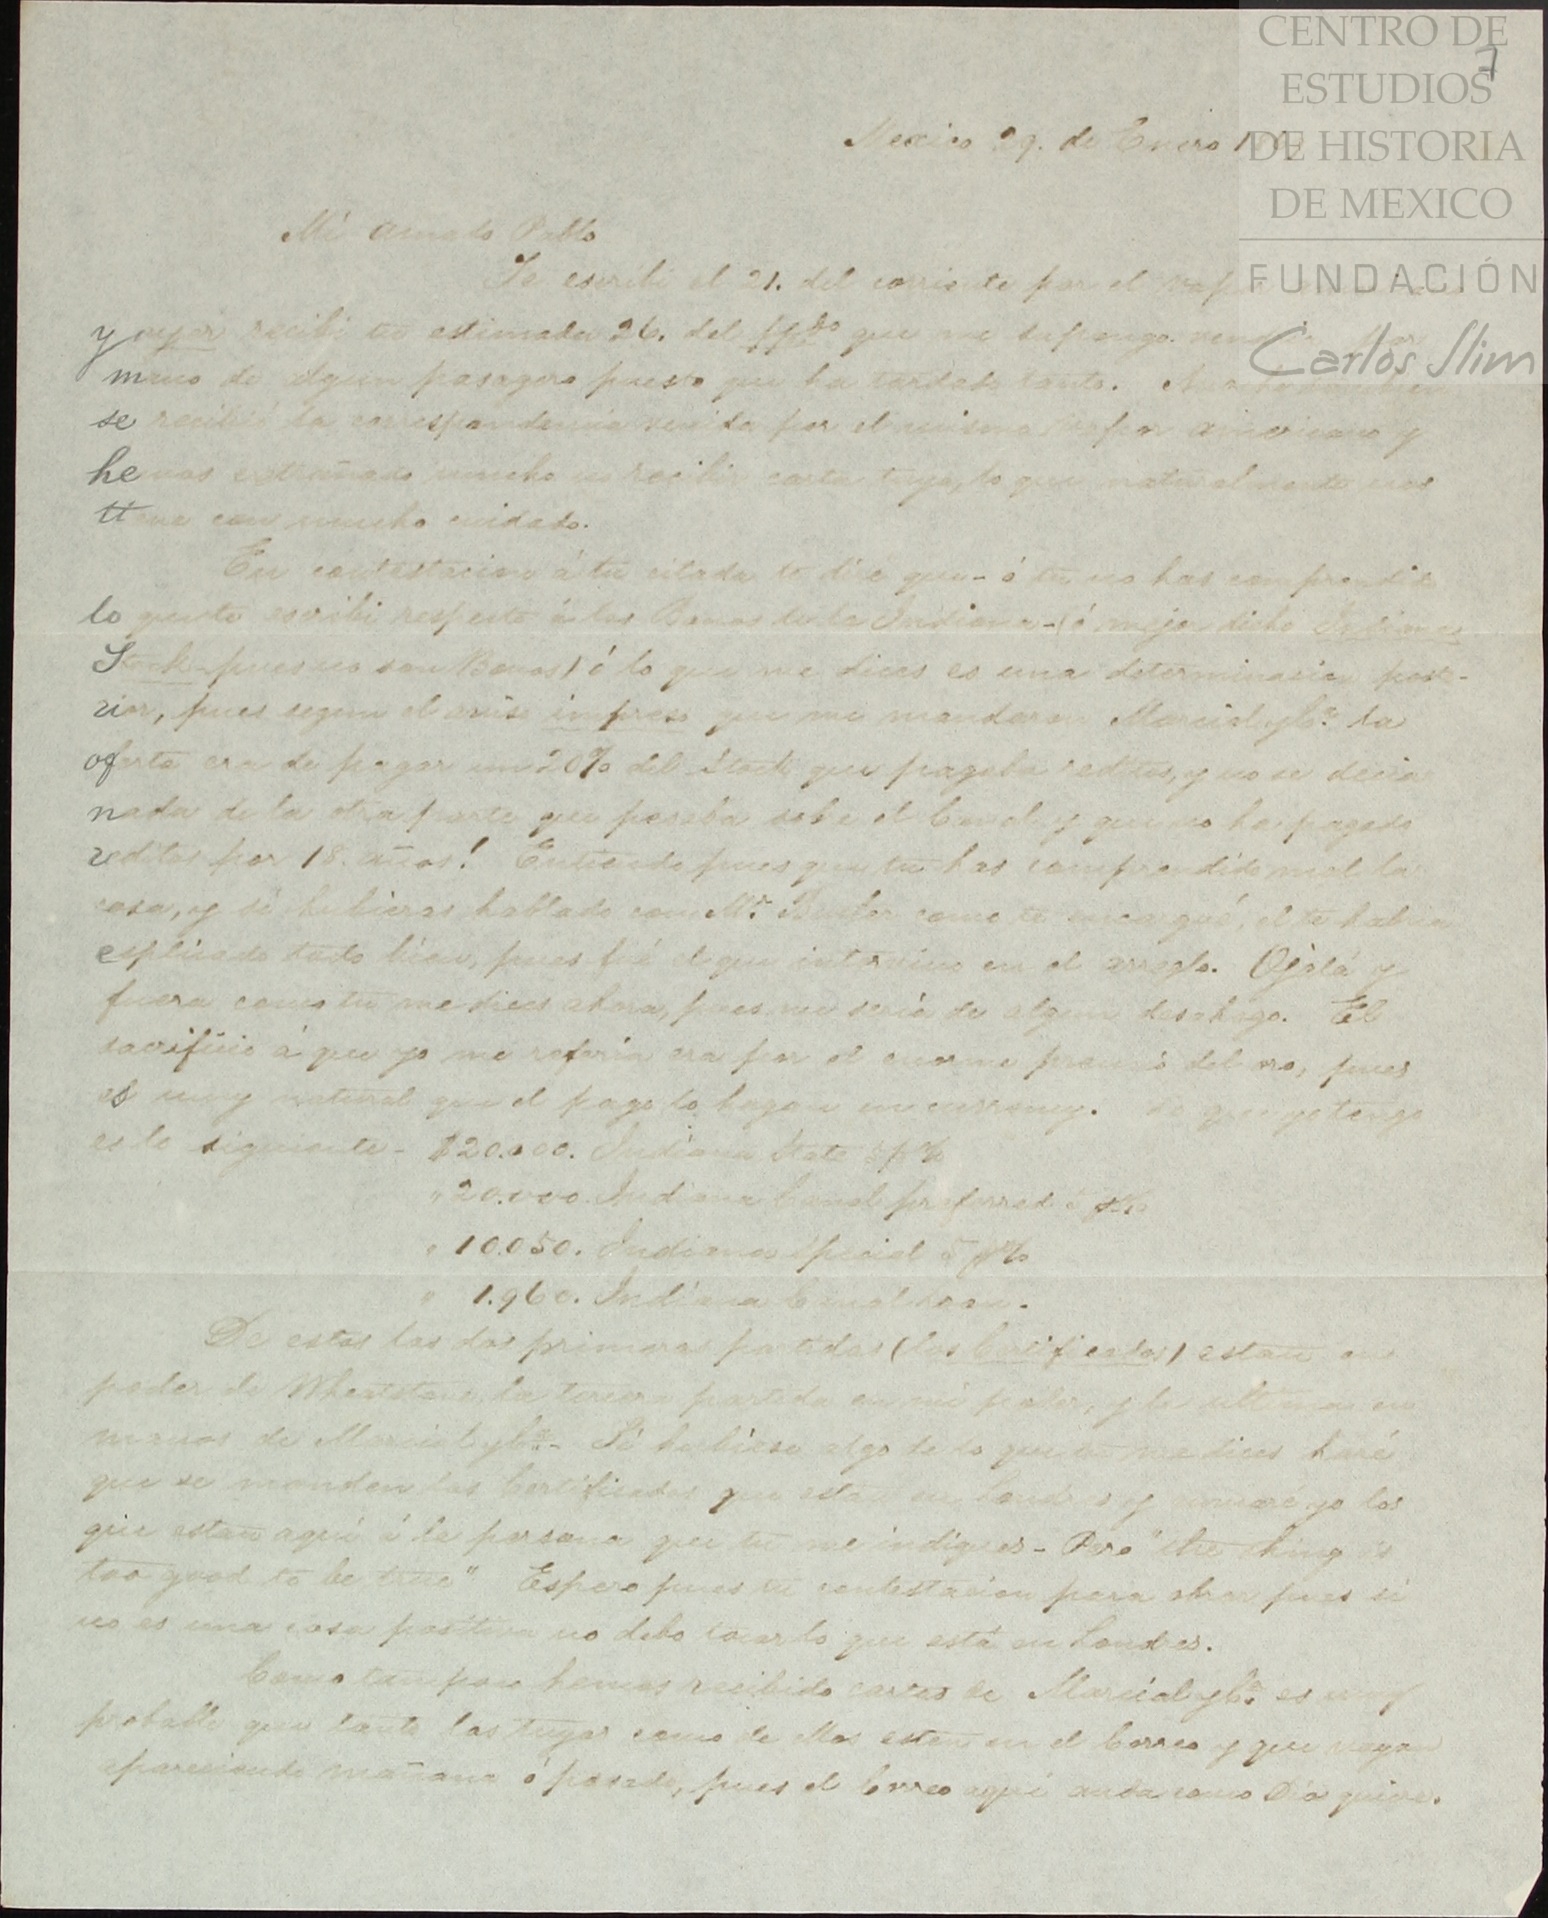 CENTRO DE
ESTUDIOS
DE HISTORIA
DE MEXICO
FUNDACIÓN
Carlos Slim
7
Mexico 29. de Enero
Mi amado Pablo
Te escribi el 21. del corriente por el vapor
y ayer recibi tu estimada 26. del que me supongo
mano de algun pasagero puesto que ha tardado tanto.
se recibió la correspondencia venida por el mismo vapor americano y
hemos extrañado mucho no recibir carta tuya, lo que naturalmente nos
tiene con mucho cuidado.
En contestacion á tu citada te diré que - ó tu no has comprendido
lo que te escribi respecto á los Bonos de la Indiana - (ó mejor dicho Indiana
Stock - pues no son Bonos) ó lo que me dices es una determinacion poste-
rior, pues segun el aviso impreso que me mandaron Marcial y Ca. la
oferta era de pagar un 20% del Stock que pagaba reditos, y no se decia
nada de la otra parte que pesaba sobre el Canal y que no ha pagado
reditos por 18. años! Entiendo pues que tu has comprendido mal la
cosa, y si hubieras hablado con Mr. Butler como te encargué, el te habria
esplicado todo bien, pues fué el que intervino en el arreglo. Ojalá y
fuera como tu me dices ahora, pues me seria de algun desahogo. El
sacrificio á que yo me referia era por el enorme premio del oro, pues
es muy natural que el pago lo hagan en currency. Lo que yo tengo
es lo siguiente - $20.000. Indiana State 5 p%
" 20.000. Indiana Canal preferred 5 p%
" 10.050. Indiana Special 5 p%
" 1.960. Indiana Canal
De estos las dos primeras partidas (los Certificados) estan en
poder de Wheatstone, la tercera partida en mi poder, y la ultima en
manos de Marcial y Ca. - Si hubiese algo de lo que tu me dices haré
que se manden los Certificados que estan en Londres y enviaré yo los
que estan aquí á la persona que tu me indiques - Pero "the thing is
too good to be true" Espero pues tu contestacion para obrar pues si
no es una cosa positiva no debo tocar lo que está en Londres.
Como tampoco hemos recibido cartas de Marcial y Ca. es muy
probable que tanto las tuyas como de ellos esten en el Correo y que vayan
apareciendo mañana ó pasado, pues el Correo aquí anda como Dio quiere.